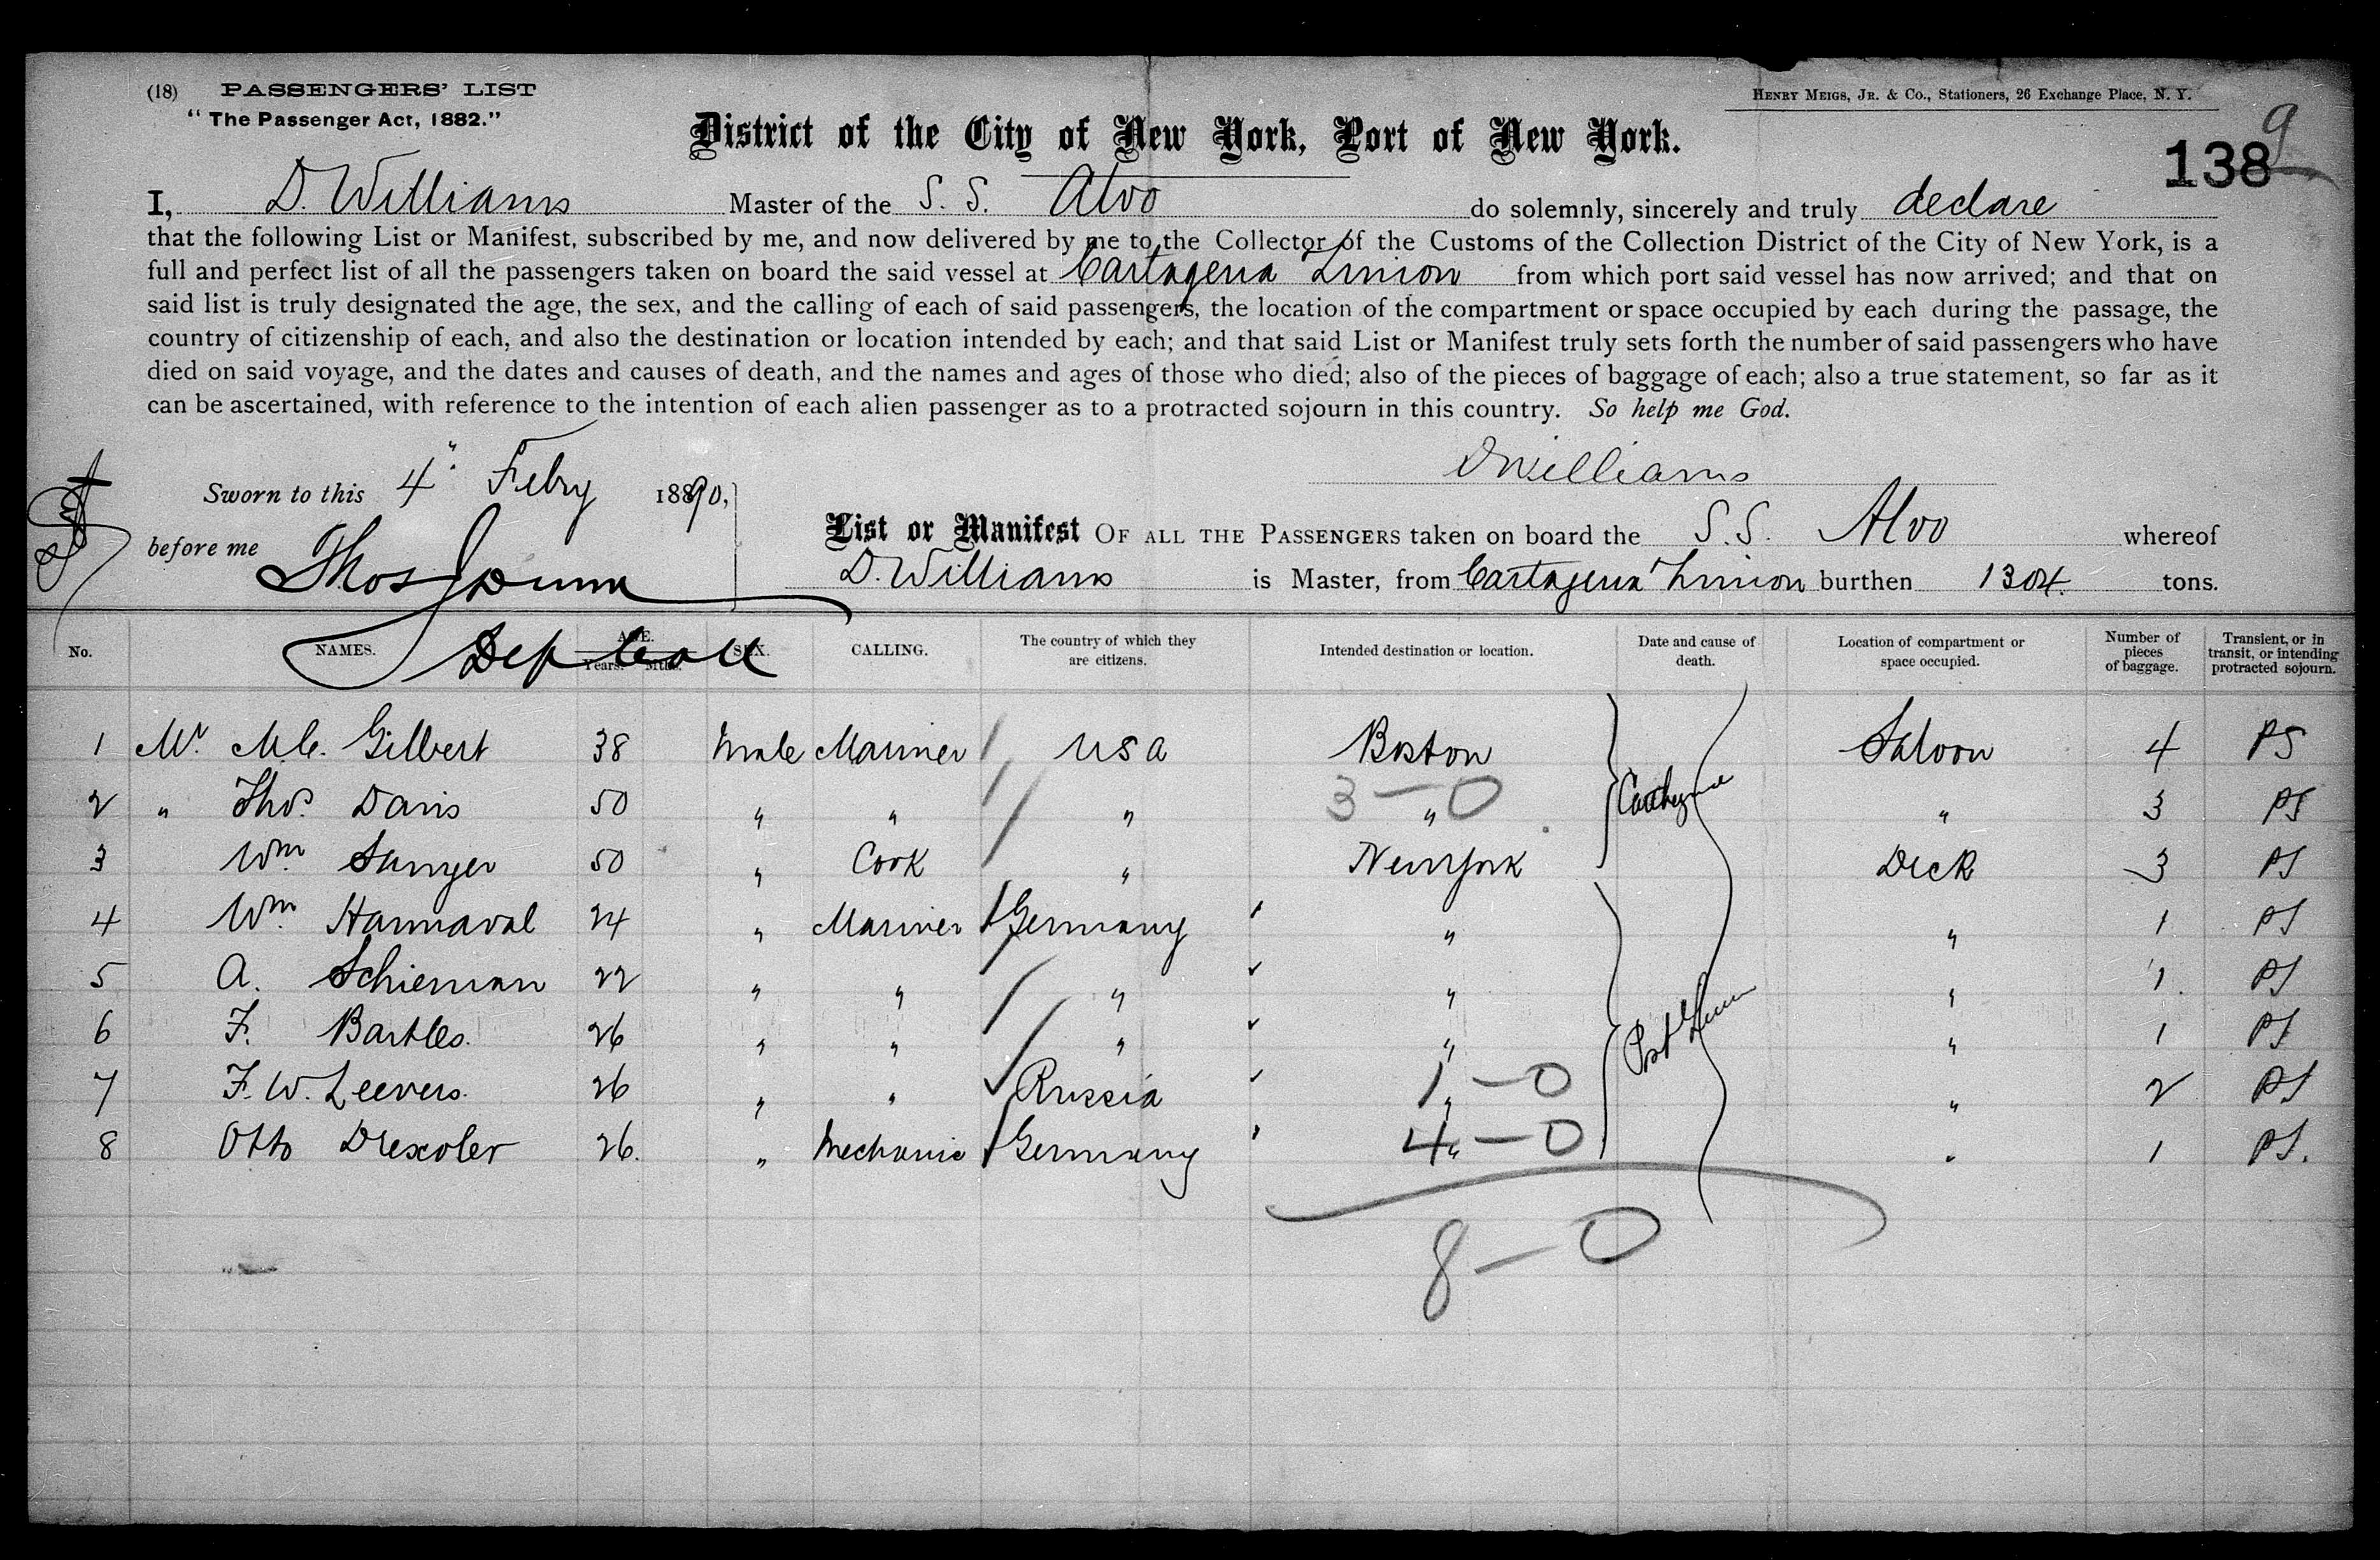 (18) PASSENGERS' LIST
"The Passenger Act, 1882."
HENRY MEIGS, JR. & CO., Stationers, 26 Exchange Place, N. Y.
District of the City of New York, Port of New York.
9
138
I, D. Williams Master of the S. S. Alvo do solemnly, sincerely and truly declare
that the following List or Manifest, subscribed by me, and now delivered by me to the Collector of the Customs of the Collection District of the City of New York, is a
full and perfect list of all the passengers taken on board the said vessel at Cartagena Limon from which port said vessel has now arrived; and that on
said list is truly designated the age, the sex, and the calling of each of said passengers, the location of the compartment or space occupied by each during the passage, the
country of citizenship of each, and also the destination or location intended by each; and that said List or Manifest truly sets forth the number of said passengers who have
died on said voyage, and the dates and causes of death, and the names and ages of those who died; also of the pieces of baggage of each; also a true statement, so far as it
can be ascertained, with reference to the intention of each alien passenger as to a protracted sojourn in this country. So help me God.
DWilliams
Sworn to this 4" Feby 1890,
before me Thos J Dunn
Dep Coll
List or Manifest OF ALL THE PASSENGERS taken on board the S. S. Alvo whereof
D. Williams is Master, from Cartagena Limon burthen 1304. tons.
No. NAMES. AGE. Years. Mths. SEX. CALLING. The country of which they are citizens. Intended destination or location. Date and cause of death. Location of compartment or space occupied. Number of pieces of baggage. Transient, or in transit, or intending protracted sojourn.
1 Mr. M.C. Gilbert 38 Male Mariner USA Boston Saloon 4 PS
2 " Thos. Davis 50 " " " " " 3 PS
3 – 0
Carthagena
3 Wm. Sanger 50 " Cook " New York Deck 3 PS
4 Wm. Hannaval 24 " Mariner Germany " " 1 PS
5 A. Schieman 22 " " " " " 1 PS
6 F. Bartles. 26 " " " " " 1 PS
Port Limon
7 F. W. Leevers. 26 " " Russia " " 2 PS
1 – 0
8 Otto Drexoler 26. " Mechanic Germany " " 1 PS.
4 – 0
8 – 0